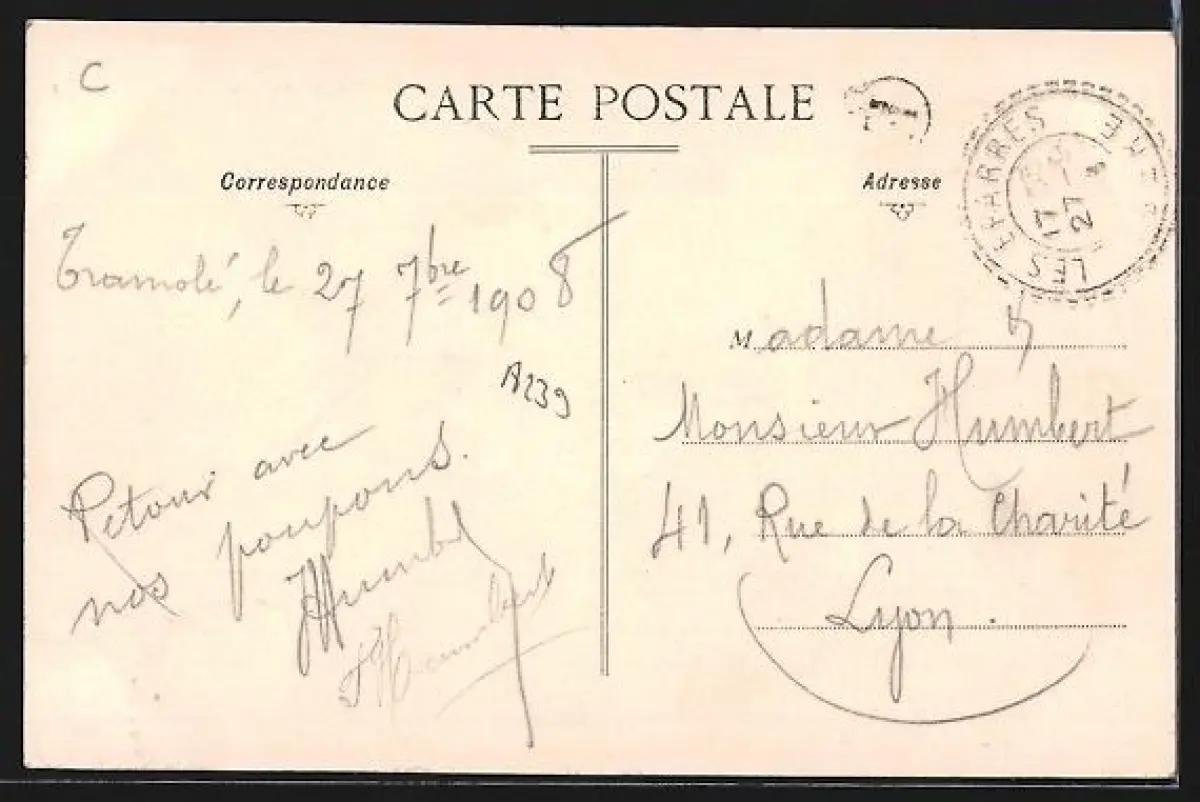 C
CARTE POSTALE
Correspondance
Adresse
LES EPARRES
17
27
Tramolé, le 27 7bre 1908
A239
Retour avec
nos poupons.
Humbert
Humbert
Madame &
Monsieur Humbert
41, Rue de la Charité
Lyon.